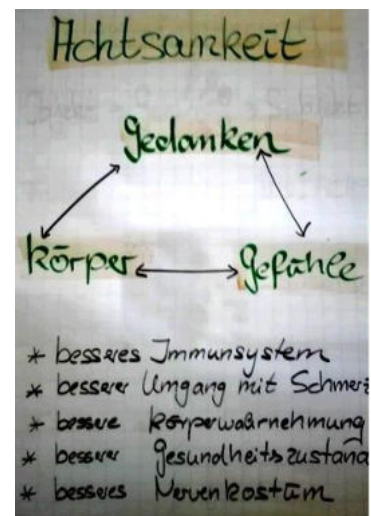 Achtsamkeit
Gedanken
Körper Gefühle
* besseres Immunsystem
* besserer Umgang mit Schmerz
* bessere Körperwahrnehmung
* besserer Gesundheitszustand
* besseres Nervenkostüm